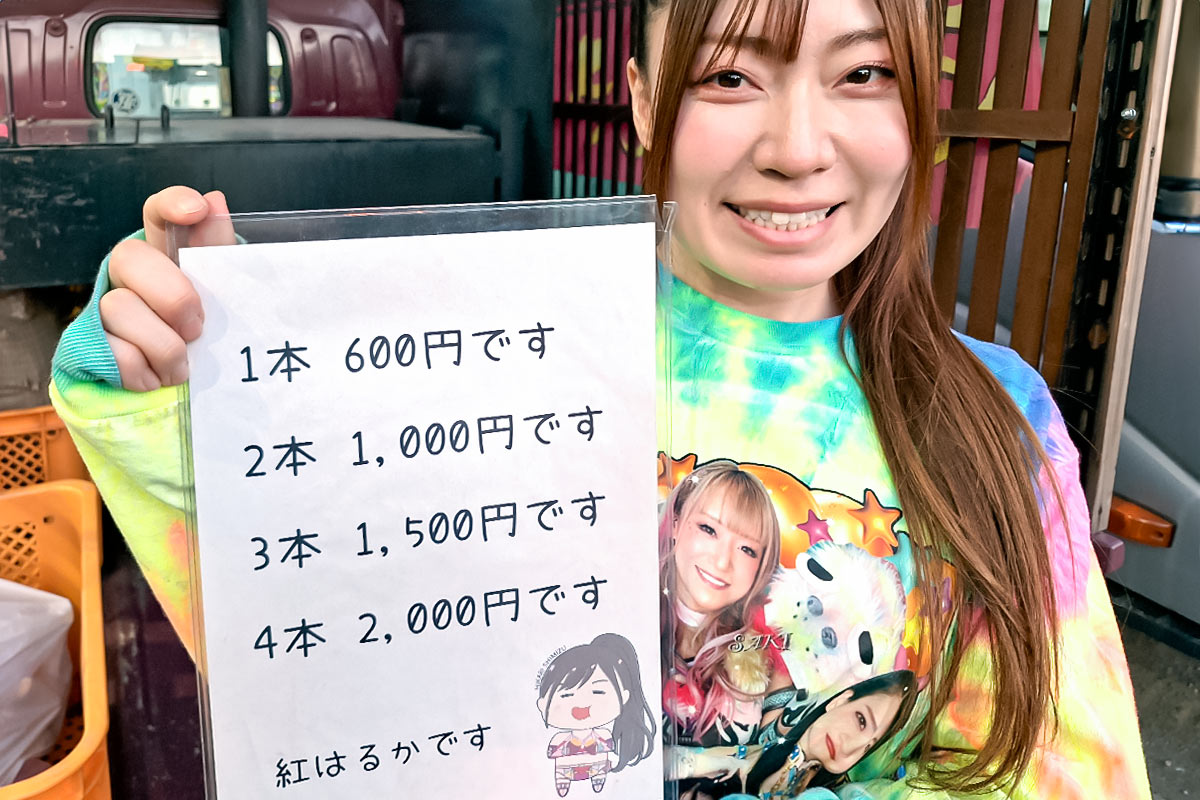 1本 600円です
2本 1,000円です
3本 1,500円です
4本 2,000円です
紅はるかです
HIKARI SHIMIZU
SAKI